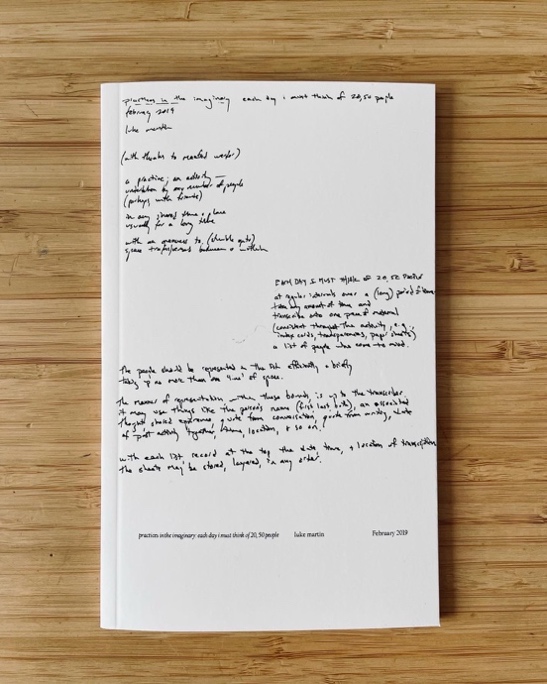 practices in the imaginary each day i must think of 20, 50 people
february 2019
luke martin
(with thanks to manfred werder)
a practice; an activity —
undertaken by any number of people
(perhaps with friends)
in any shared time, place
usually for a long time
with an openness to (double gate)
space transpersons between & within
EACH DAY I MUST THINK OF 20, 50 PEOPLE
at regular intervals over a (long) period of time
take any amount of time and
transcribe onto one piece of material
(consistent throughout the activity, e.g.,
index cards, transparencies, paper sheets)
a list of people who come to mind.
the people should be represented in the list efficiently & briefly
taking up no more than one 'line' of space.
the manner of representation within these bounds is up to the transcriber
it may use things like the person's name (first last both), an associated
thought shared experience, quote from conversation, quote from writing, date
of past activity together, time, location, & so on.
with each list record at the top the date time, & location of transcription
the sheets may be stored, layered, in any order.
practices in the imaginary: each day i must think of 20, 50 people luke martin February 2019